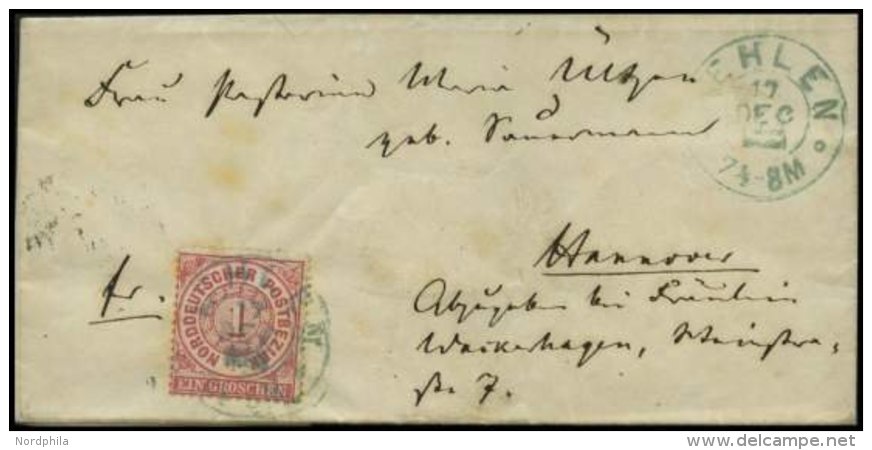 Frau Pastorin Maria Ützen
geb. Sauermann
EHLEN
17
DEC
7½-8M
Hannover
fr.
Abzugeben bei Fräulein
Wackerhagen, Weinstra-
ße 7.
NORDDEUTSCHER POSTBEZIRK
1
EIN GROSCHEN
Nordphila
www.delcampe.net